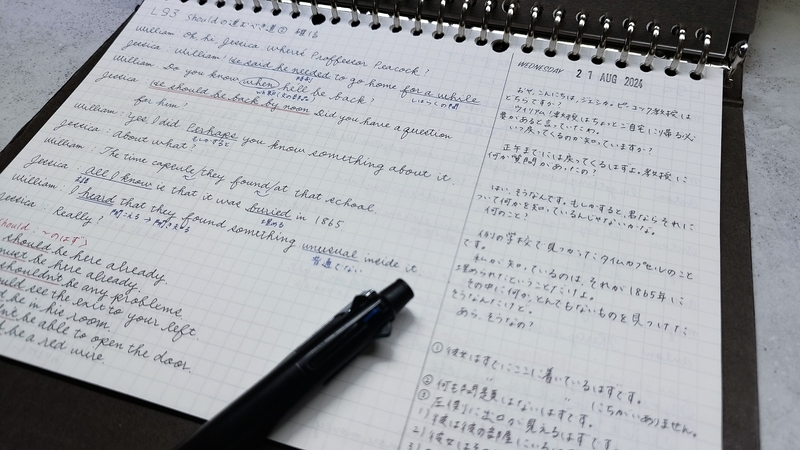 L93 shouldの
William: Oh, hi Jessica. Where's Proffessor Peacock?
Jessica: William! He said he needed to go home for a while
William: Do you know when he'll be back?
Jessica: He should be back by noon. Did you have a question
for him?
William: Yes. I did. Perhaps you know something about it.
Jessica: About what?
William: The time capsule they found at that school.
Jessica: All I know is that it was buried in 1865.
William: I heard that they found something unusual inside it.
普通でない
Jessica: Really?
should be here already.
must be here already.
shouldn't be any problems.
should see the exit to your left.
be in his room.
be able to open the door.
be a red wire.
WEDNESDAY 21 AUG 2024
おや、こんにちは、ジェシカ。ピーコック教授は
どちらですか？
ウィリアム！教授はちょっとご自宅に帰る必
要があると言っていたわ。
いつ戻ってくるのか知っていますか？
正午までには戻ってくるはずよ。教授に
何か質問があったの？
はい、そうなんです。もしかすると、君ならそれに
ついて何かを知っているんじゃないかな。
何のこと？
例の学校で見つかったタイムカプセルのこと
です。
私が知っているのは、それが1865年に
埋められたということだけよ。
その中に何か、とんでもないものを見つけた
そうなんだけど。
あら、そうなの？
① 彼女はすでにここに着いているはずです。
にちがいありません。
② 何も問題はないはずです。
③ 左側に出口が見えるはずです。
1) 彼は彼の部屋にいる
2) 彼女は